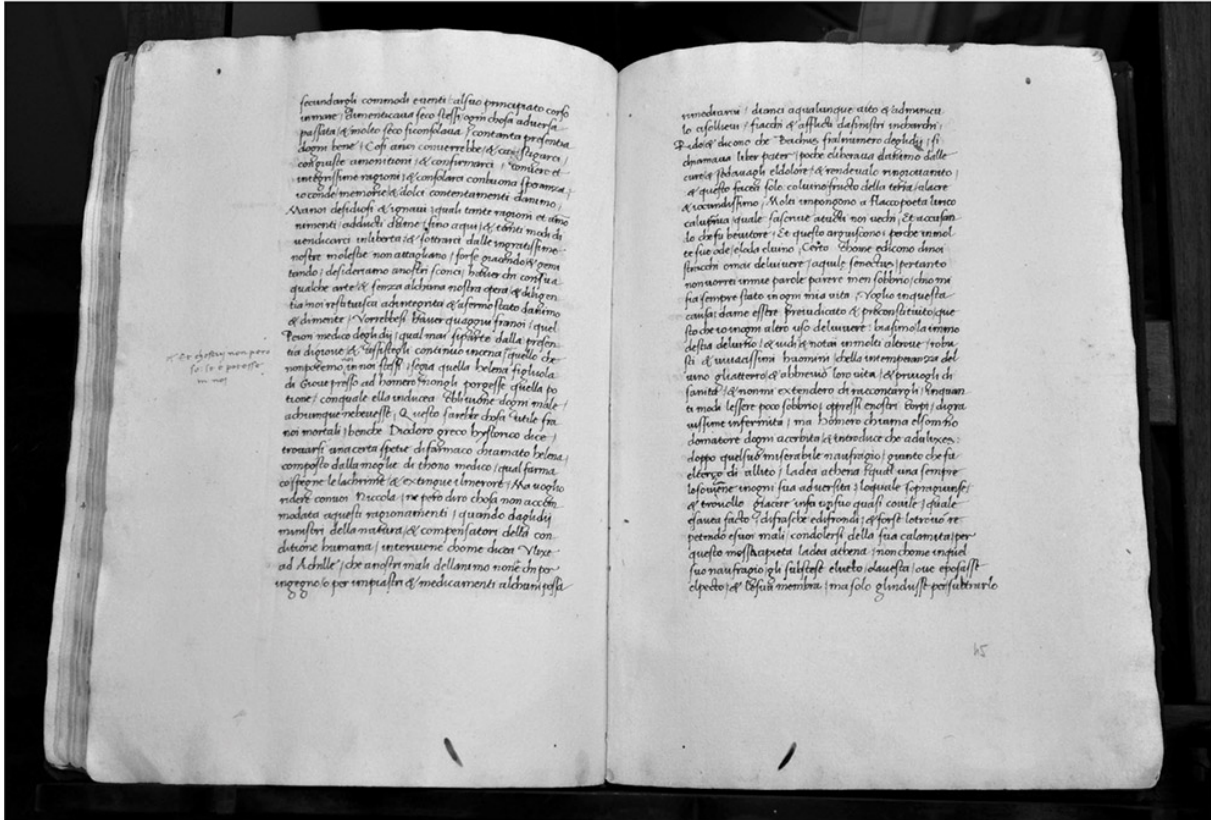 secundargli commodi eventi / al suo principiato corso
in mare / dimenticava seco stessi ogni chosa adversa
passata / & molto seco si consolava / con tanta presentia
dogni bene / Cosi a noi converrebbe / & castigarci /
con giuste amonitioni / & confirmarci / con vere et
integrissime ragioni / & consolarci con buona speranza /
ioconde memorie / & dolci contentamenti danimo /
Ma noi desidiosi & ignavi / quali tante ragioni et amo
nimenti / adducti da me / sino a qui / & tanti modi di
vendicarci in liberta / & sottrarci dalle ingratissime
nostre molestie non attagliano / forse giacendo / & gemi
tando / desideriamo a nostri sconci / haver chi con sua
qualche arte / & senza alchuna nostra opera / & diligen
tia / noi restituisca ad integrita & a fermo stato danimo
& di mente / Vorrebbesi haver qua giu fra noi / quel
Peon medico degli dij / qual mai si parte dalla presen
tia di giove / & assistegli continuo in cena / quello che
non potemo in noi stessi / segia quella helena figluola
di Giove presso ad homero / non gli porgesse quella po
tione / con quale ella inducea oblivione dogni male /
a chiunque ne bevesse / Questo sarebbe chosa utile fra
noi mortali / benche Diodoro greco hystorico dice /
trovarsi una certa spetie di farmaco chiamato helena /
composto dalla moglie di thono medico / qual farma
co spegne le lachrime / & extingue il merore / Ma voglio
ridere con voi Niccola / ne pero diro chosa non accom
modata a questi ragionamenti / quando dagli dij
ministri della natura / & compensatori della con
ditione humana / intervene chome dicea Ulixe
ad Achille / che a nostri mali dellanimo non e chi per
ingegno / o per impiastri & medicamenti alchuni possa
& Et chostui non pero
in noi
rimediarvi / dianci a qualunque aito & adminicu
lo ci sollievi / fiacchi & afflicti da sinistri incharchi /
Rido / & dicono che Bachus fra il numero degli dij / si
chiamava liber pater / poche liberava lanimo dalle
cure / & sedavagli el dolore / & rendevalo ringiovanito /
& questo facea solo col vino fructo della terra / alacre
& iocundissimo / Molti impongono a Flacco poeta lirico
calumnia / quale sascrive a tucti noi vechi / Et accusan
lo che fu bevitore / Et questo arguiscono / perche in mol
te sue ode / e loda el vino / Certo chome e dicono di noi
stracchi omai del vivere / aquile senectus / pertanto
non vorrei in mie parole parere men sobbrio / che io mi
sia sempre stato in ogni mia vita / Voglio in questa
causa / da me essere preiudicato & preconstituito / que
sto che io in ogni altro uso del vivere / biasimo la immo
destia del vino / & vidi / & notai in molti altrove / robu
sti & vivacissimi huomini / che lla intemperanza del
vino gli atterro / & abbrevio loro vita / & privogli di
sanita / & non mi extendero di raccontargli / in quan
ti modi lessere poco sobbrio / oppressi e nostri corpi / di gra
vissime infermita / ma homero chiama el somno
domatore dogni acerbita / & introduce che ad ulixes :
doppo quel suo miserabile naufragio / giunto che fu
el corpo di allito / la dea athena / qual una sempre
lo sovenne in ogni sua adversita / lo quale sopragiunse /
& trovollo giacere in quasi covile / quale
esavea facto / di frasche e di frondi / & forse lo trovo re
petendo e suoi mali / condolersi della sua calamita / per
questo mossa a pieta la dea athena / non chome in quel
suo naufragio / gli subtesse el veto / o la vesta / ove e posasse
el pecto / & le sue membra / ma solo glindusse per subterarlo
45